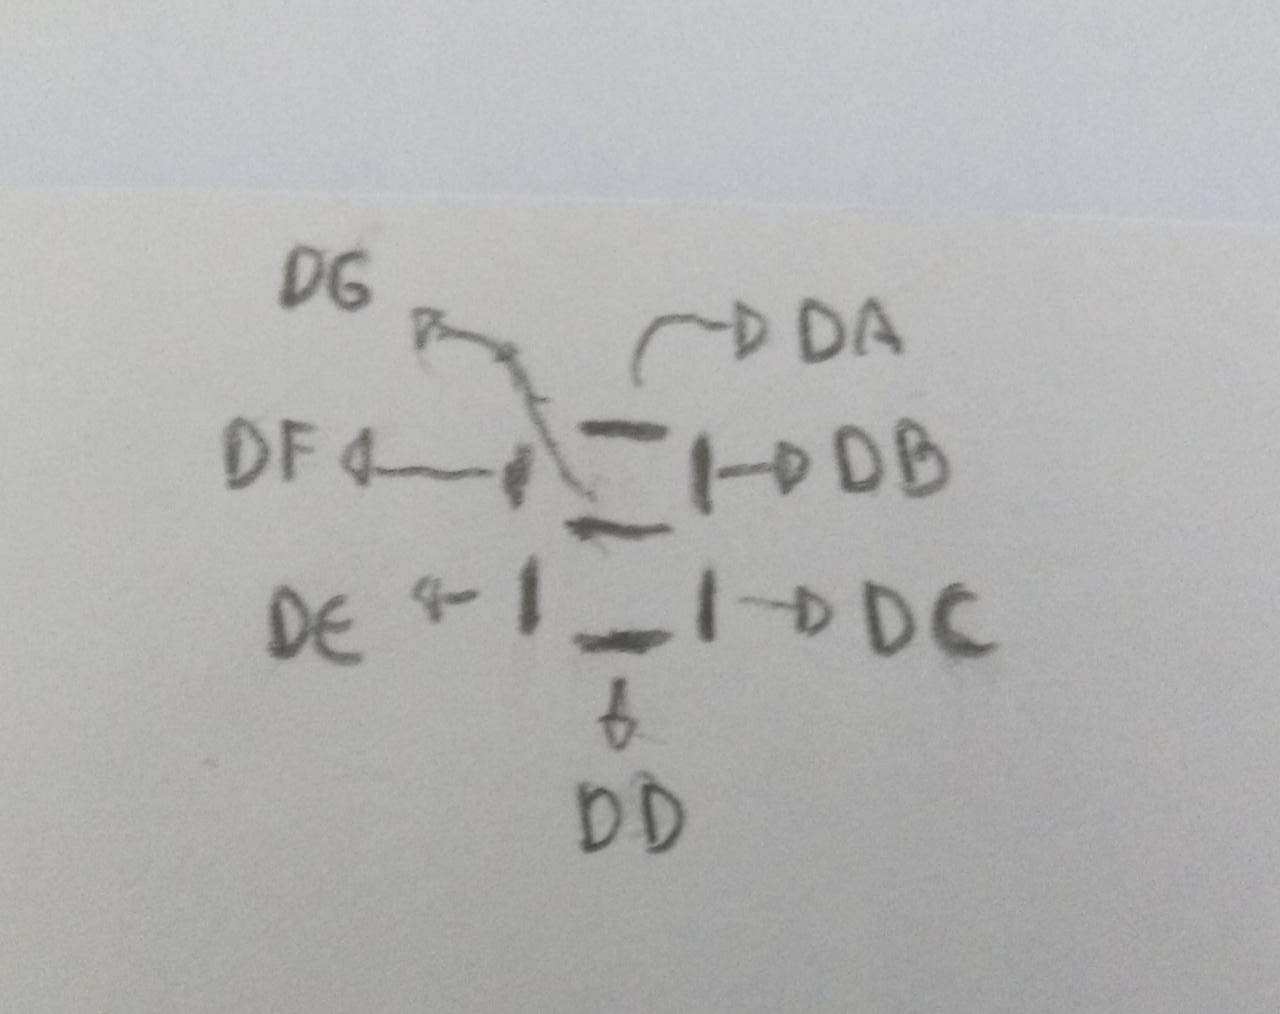 DG
DA
DF
DB
DE
DC
DD